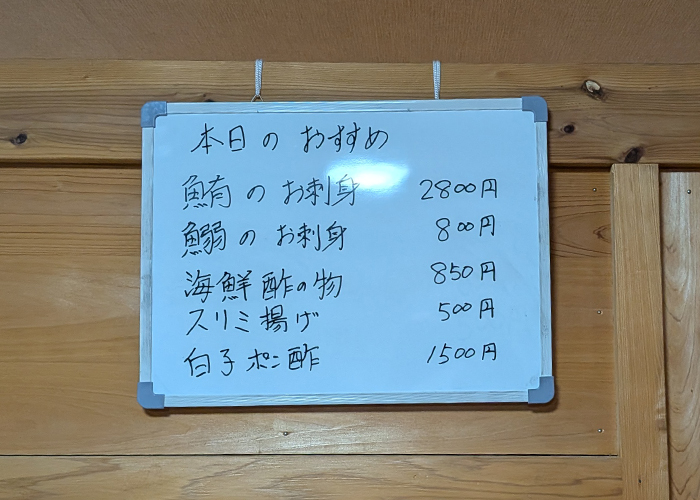 本日の おすすめ
鮪のお刺身 2800円
鰯のお刺身 800円
海鮮酢の物 850円
スリミ揚げ 500円
白子ポン酢 1500円